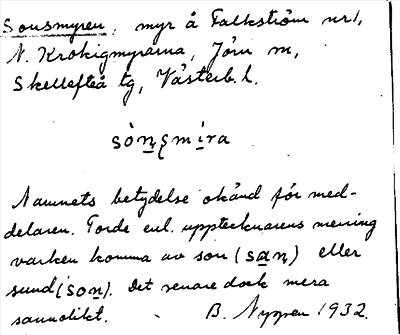 Sonsmyren, myr å Falkström nr 1,
N. Krokigmyrarna, Jörn sn,
Skellefteå tg, Västerb. l.
sò̀n̠ʂmi̠ra
Namnets betydelse okänd för med-
delaren. Torde enl. upptecknarens mening
varken komma av son (sa̠n̠) eller
sund (son̠). Det senare dock mera
sannolikt. B. Nygren 1932.